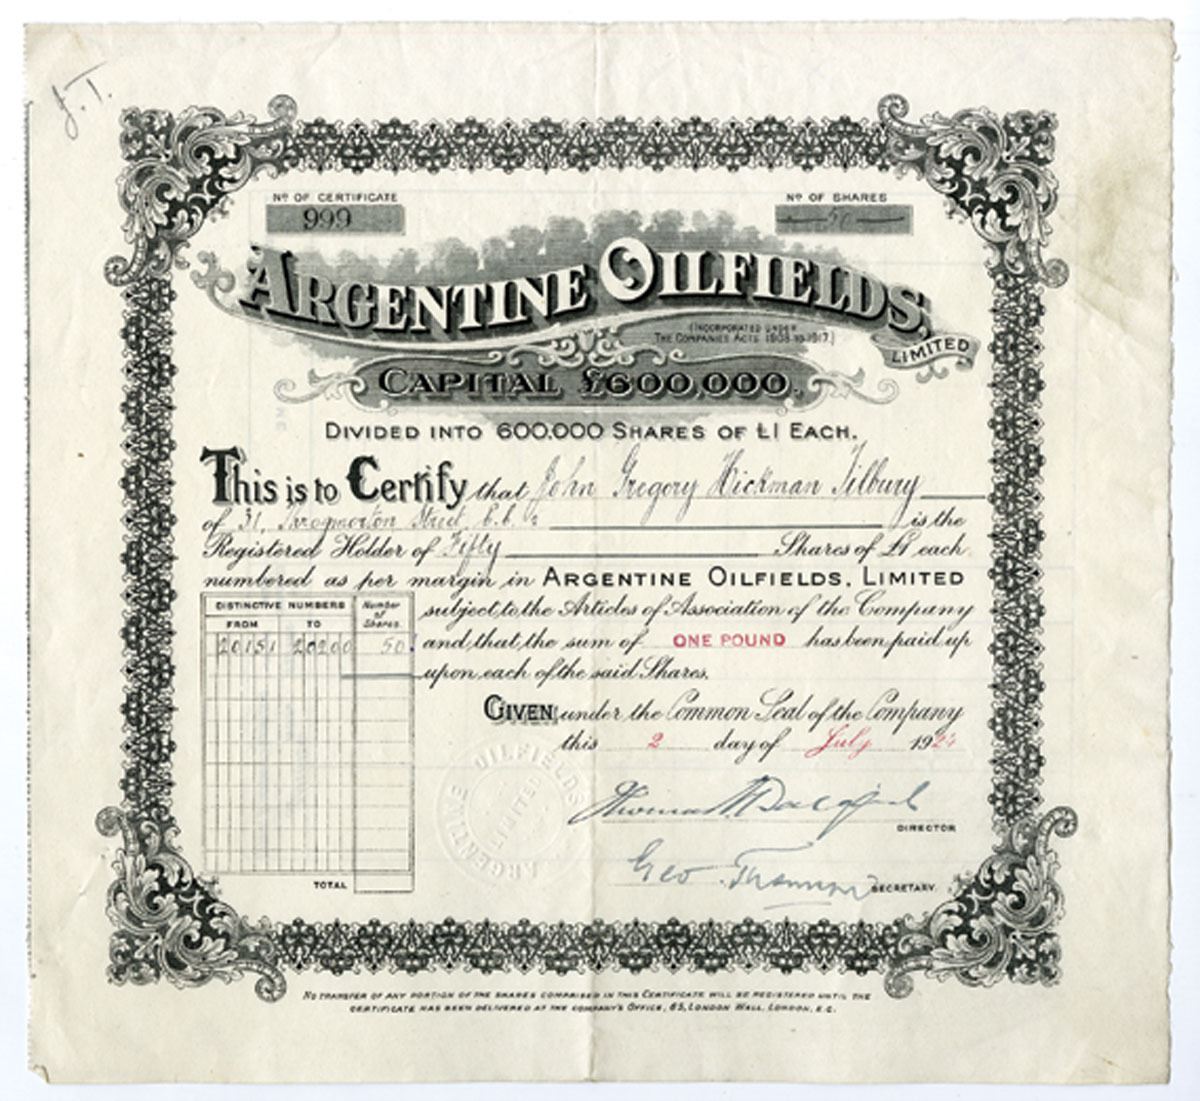 J.T.
Nº OF CERTIFICATE
999
Nº OF SHARES
50
ARGENTINE OILFIELDS,
LIMITED
(INCORPORATED UNDER
THE COMPANIES ACTS 1908 TO 1917.)
CAPITAL, £600,000.
DIVIDED INTO 600,000 SHARES OF £1 EACH.
This is to Certify that John Gregory Hickman Tilbury
of 31, Throgmorton Street, E.C. 2 is the
Registered Holder of Fifty Shares of £1 each
numbered as per margin in ARGENTINE OILFIELDS, LIMITED
subject to the Articles of Association of the Company
and that the sum of ONE POUND has been paid up
upon each of the said Shares.
DISTINCTIVE NUMBERS
Number of Shares.
FROM TO
20151 20200 50
TOTAL
GIVEN under the Common Seal of the Company
this 2 day of July 1924
ARGENTINE OILFIELDS
LIMITED
Thomas
DIRECTOR
Geo.
SECRETARY.
NO TRANSFER OF ANY PORTION OF THE SHARES COMPRISED IN THIS CERTIFICATE WILL BE REGISTERED UNTIL THE
CERTIFICATE HAS BEEN DELIVERED AT THE COMPANY'S OFFICE, 65, LONDON WALL, LONDON, E.C.